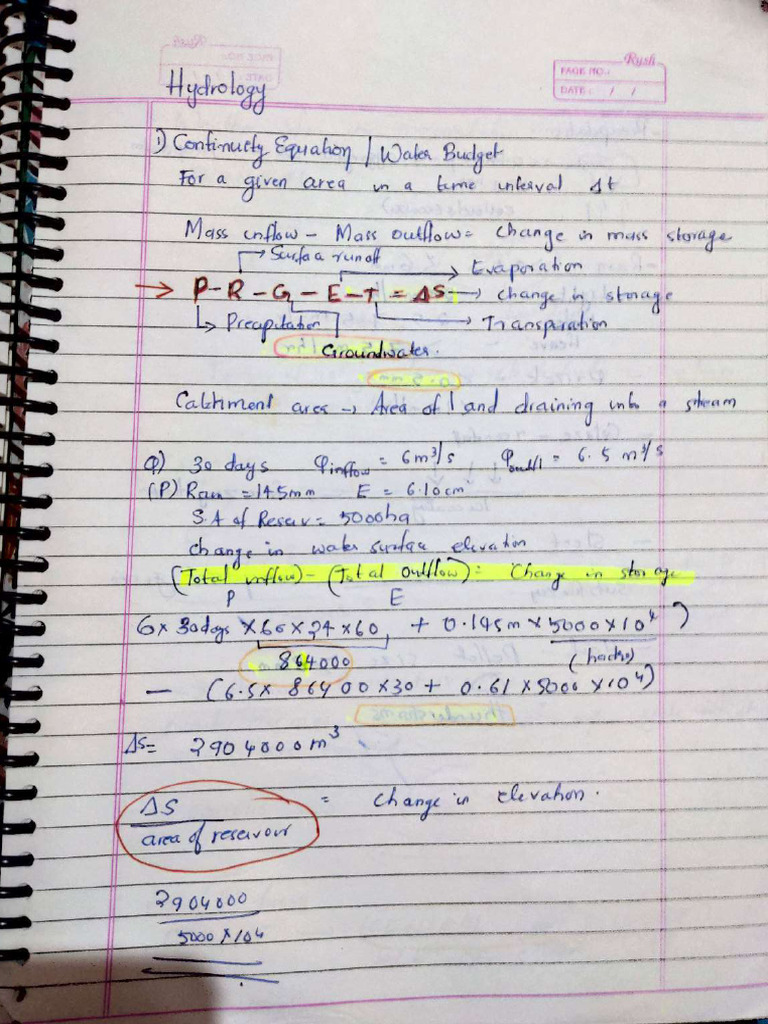 Rysh
PAGE NO.:
DATE: / /
Hydrology
1) Continuity Equation / Water Budget
For a given area in a time interval Δt
Mass inflow - Mass outflow = change in mass storage
→ Surface runoff
→ Evaporation
→ P - R - G - E - T = ΔS → change in storage
↳ Precipitation
→ Transpiration
Groundwater.
Catchment area → Area of land draining into a stream
Q) 30 days Qinflow = 6 m³/s Qoutfl = 6.5 m³/s
(P) Rain = 145mm E = 6.10cm
S.A of Reserv = 5000ha
change in water surface elevation
(Total inflow) - (Total outflow) = Change in storage
P E
6 x 30days x 60 x 24 x 60 + 0.145m x 5000 x 10⁴)
864000
(hacks)
- (6.5 x 86400 x 30 + 0.61 x 5000 x 10⁴)
ΔS = 2904000m³
ΔS = change in elevation.
area of reservour
2904000
5000 x 104